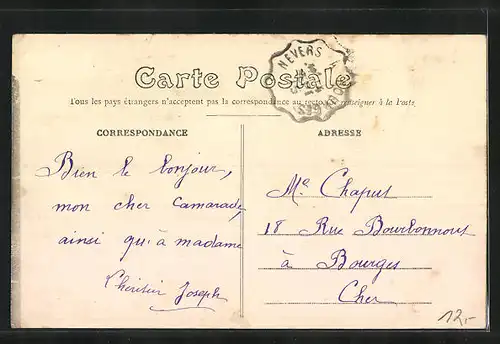 Carte Postale
NEVERS A
Tous les pays étrangers n'acceptent pas la correspondance au recto (se renseigner à la Poste)
CORRESPONDANCE
Bien le bonjour,
mon cher camarade,
ainsi qu'à madame
Lhéritier Joseph
ADRESSE
Mr Chaput
18 Rue Bourbonnoux
à Bourges
Cher
12,-